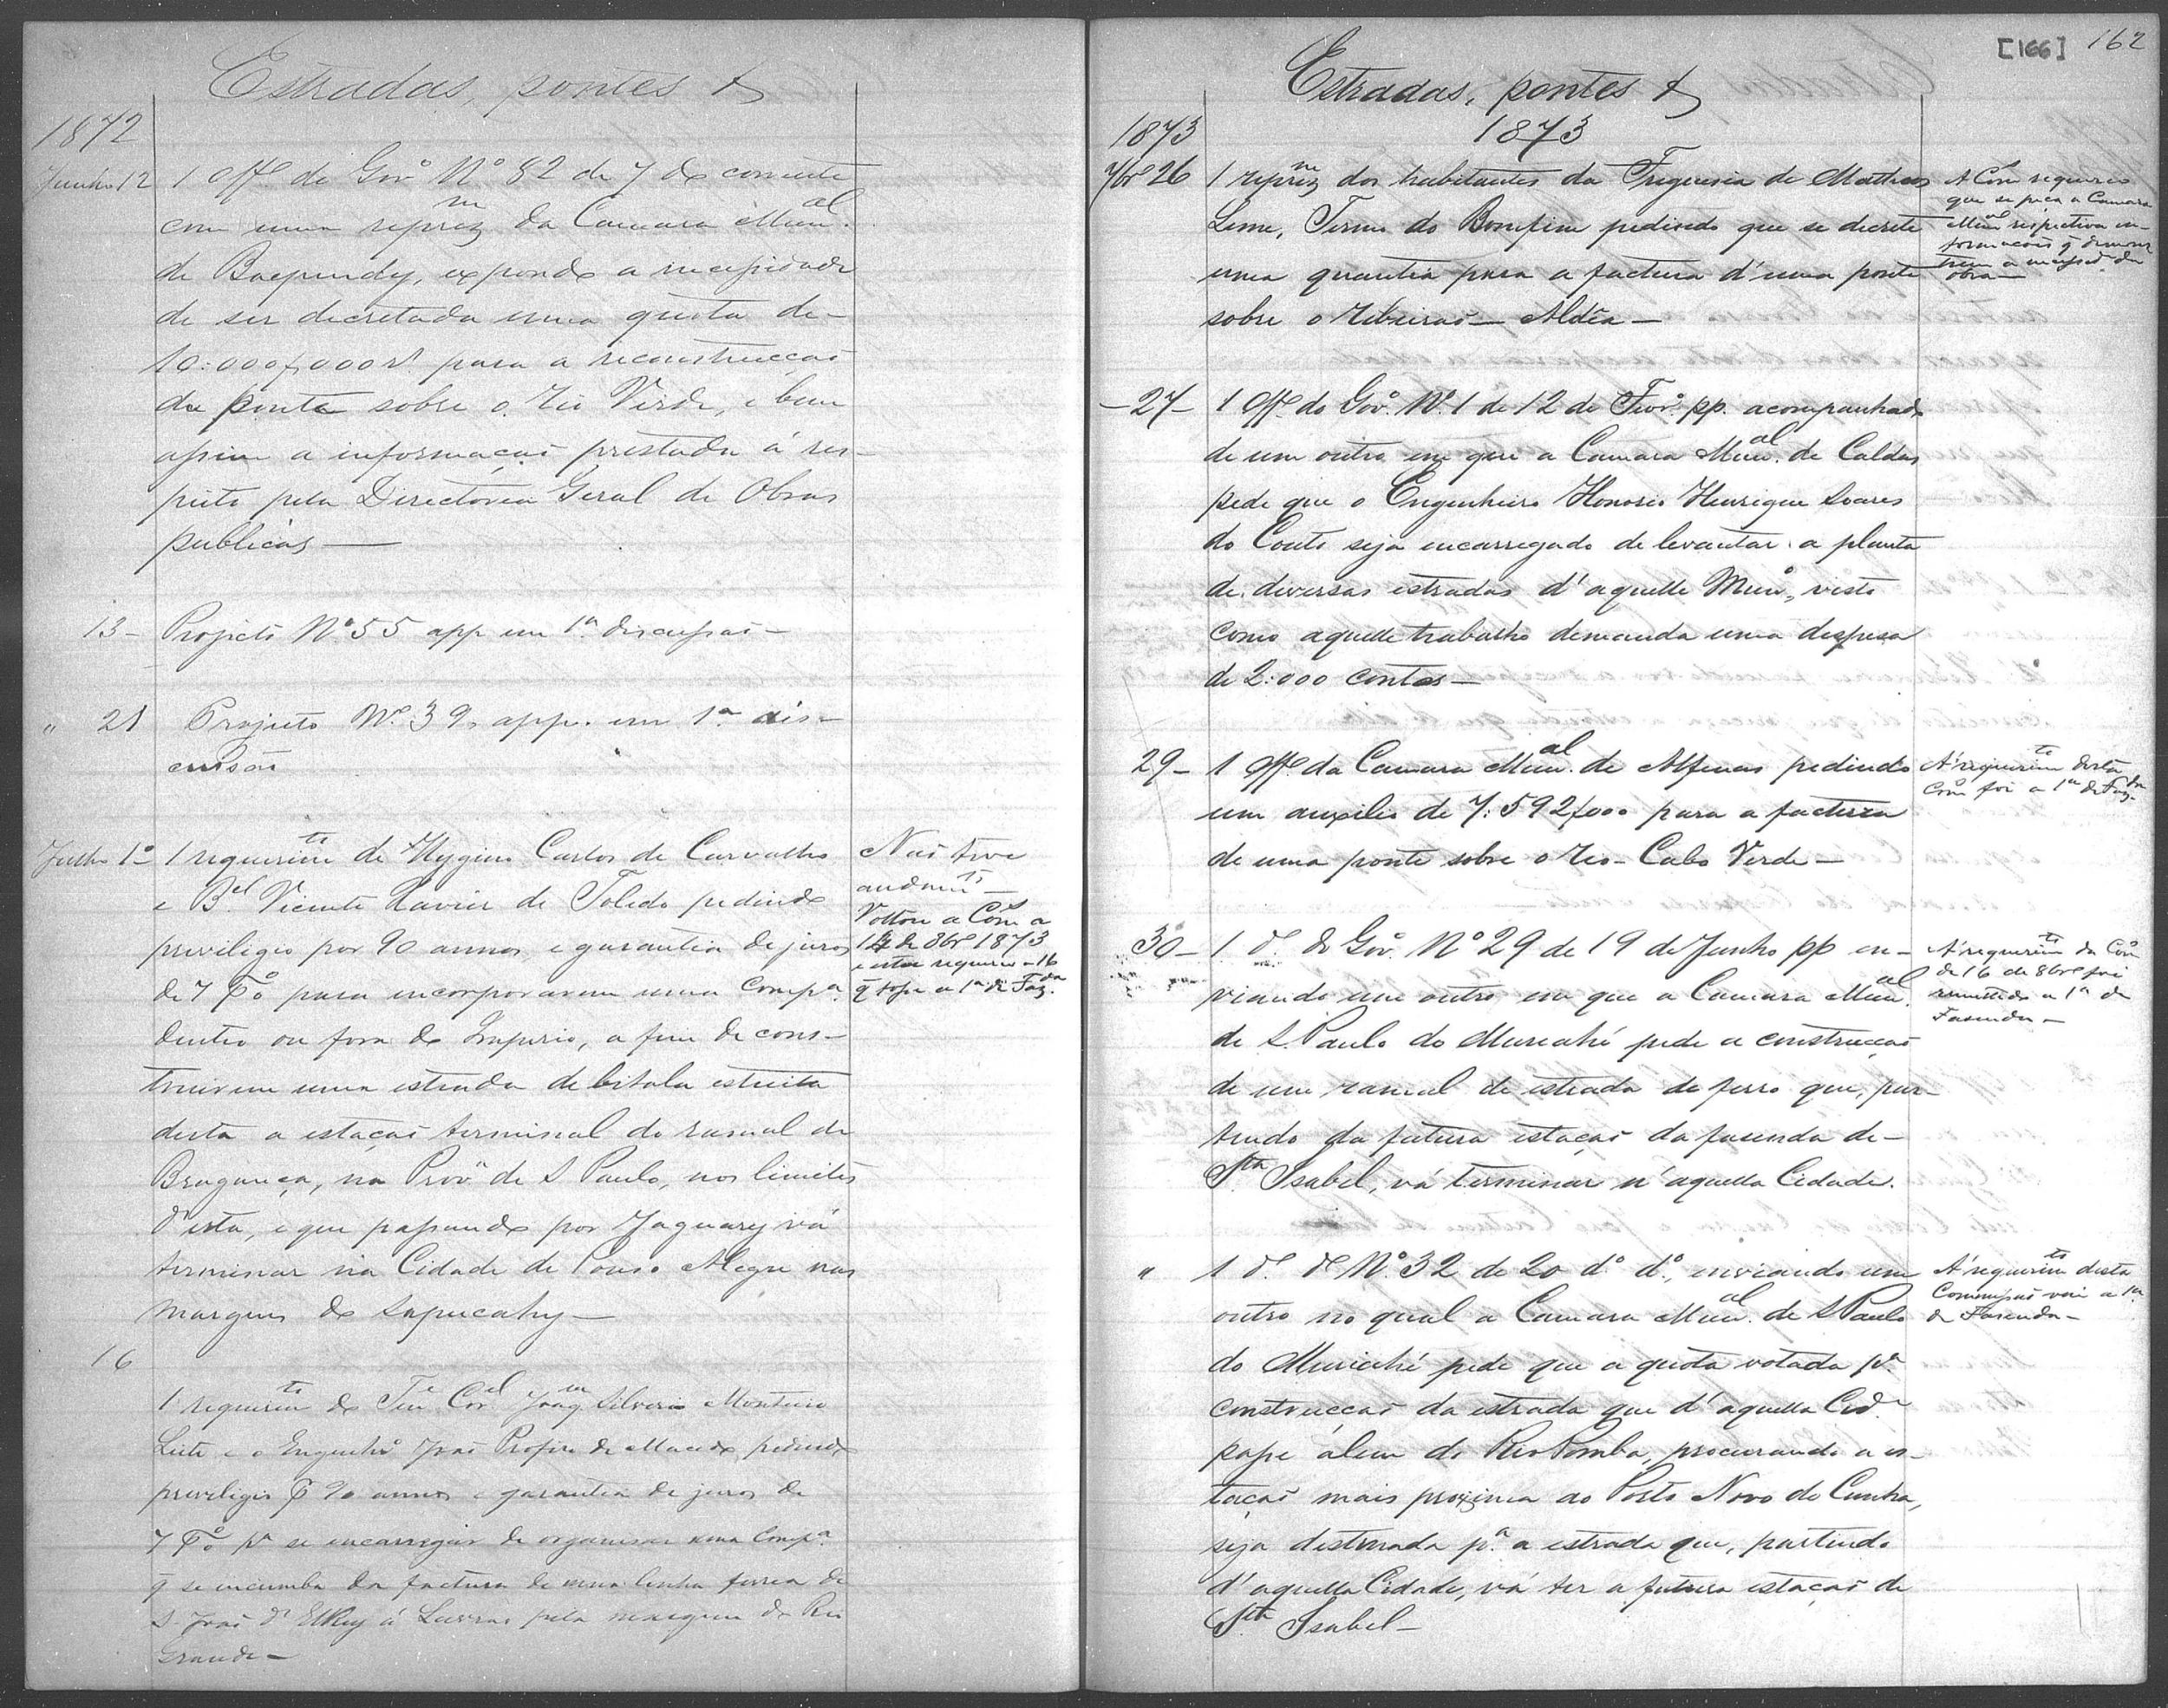 Estradas, pontes &
1872
Junho 12
1 Offº do Govº Nº 82 de 7 do corrente
com uma reprezm da Camara Munal
de Baependy, expondo a necessidade
de ser decretada uma quota de-
10:000$000 rs para a reconstrucçaõ
da ponte sobre o rio Verde, e bem
assim a informaçaõ prestada á res-
peito pela Directoria Geral de Obras
publicas—
13- Projecto Nº 55 app em 1ª discussaõ-
" 21 Projecto Nº 39, app. em 1ª dis-
cussaõ
Julho 1º- 1 requerimto de Hygino Carlos de Carvalho
e Bel Vicente Xavier de Toledo pedindo
privilegio por 90 annos, e garantia de juros
de 7 p% para incorporarem uma Compª
dentro ou fora do Imperio, a fim de cons-
truirem uma estrada de bitola estreita
desta a estaçaõ terminal do ramal de
Bragança, na Provª de S Paulo, nos limites
d'esta, e que passando por Jaguary vá
terminar na Cidade de Pouso Alegre nas
margens do Sapucahy—
Naõ teve
andamto—
Voltou a Com a
14 de 8brº 1873
e esta requereo - 16
q fosse a 1ª de Fazda
16
1 requerimto do Tene Corel Joaqm Silverio Monteiro
Leite e o Engenhrº Joaõ Profiro de Macedo, pedindo
previlegio p 90 annos e garantia de juros de
7 p% pª se encarregar de organisar uma Compª
q se incumba da factura de uma linha ferrea de
S. Joaõ d'El Rey á Lavras pela margem do Rio
Grande-
[166] 162
Estradas, pontes &
1873 1873
7brº 26 1 reprezm dos habitantes da Freguesia de Matheus
Leme, Termo do Bomfim pedindo que se decrete
uma quantia para a factura d'uma ponte
sobre o ribeiraõ - Aldêa-
A Com requereo
que se peça a Camara
Munal respectiva in-
formações q demons
trem a necessde da
obra-
-27- 1 Offº do Govº Nº 1 de 12 de Fevrº pp. acompanhado
de um outro em que a Camara Munal de Caldas
pede que o Engenheiro Honorio Henrique Soares
do Couto seja encarregado de levantar a planta
de diversas estradas d'aquelle Munº, visto
como aquelle trabalho demanda uma despesa
de 2:000 contos-
29- 1 Offº da Camara Munal de Alfenas pedindo
um auxilio de 7:592$000 para a factura
de uma ponte sobre o rio - Cabo Verde-
A' requerimto desta
Com foi a 1ª de Fazda
30- 1 dº do Govº Nº 29 de 19 de Junho pp en-
viando um outro em que a Camara Munal
de S. Paulo do Muriahé pede a construcçaõ
de um ramal de estrada de ferro que, par-
tindo da futura estaçaõ da fasenda de-
Sta Isabel, vá terminar n'aquella Cidade.
A' requerimto da Com
de 16 de 8brº foi
remettido a 1ª de
Fasenda-
" 1 dº dº Nº 32 de 20 dº dº, enviando um
outro no qual a Camara Munal de S Paulo
do Muriahé pede que a quota votada pª
construcçaõ da estrada que d'aquella Cide
passe álem do Rio Pomba, procurando a es-
taçaõ mais proxima ao Porto Novo do Cunha,
seja destinada pª a estrada que, partindo
d'aquella Cidade, vá ter a futura estaçaõ de
Sta Isabel-
A' requerimto desta
Commissaõ vai a 1ª
de Fasenda-